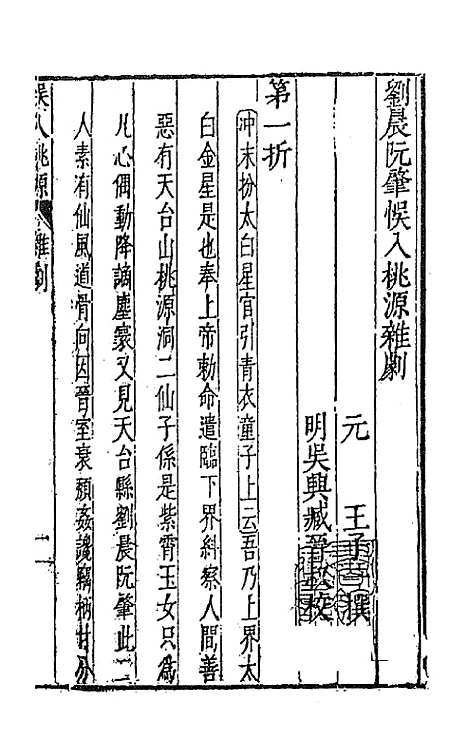 劉晨阮肇悞入桃源雜劇
元 王子一撰
明吳興臧晉叔校
第一折
冲末扮太白星官引青衣童子上云吾乃上界太
白金星是也奉上帝勅命遣臨下界糾察人間善
惡有天台山桃源洞二仙子係是紫霄玉女只為
凡心偶動降謫塵寰又見天台縣劉晨阮肇此二
人素有仙風道骨向因晉室衰頹姦讒竊柄甘分
悞入桃源 雜劇
一